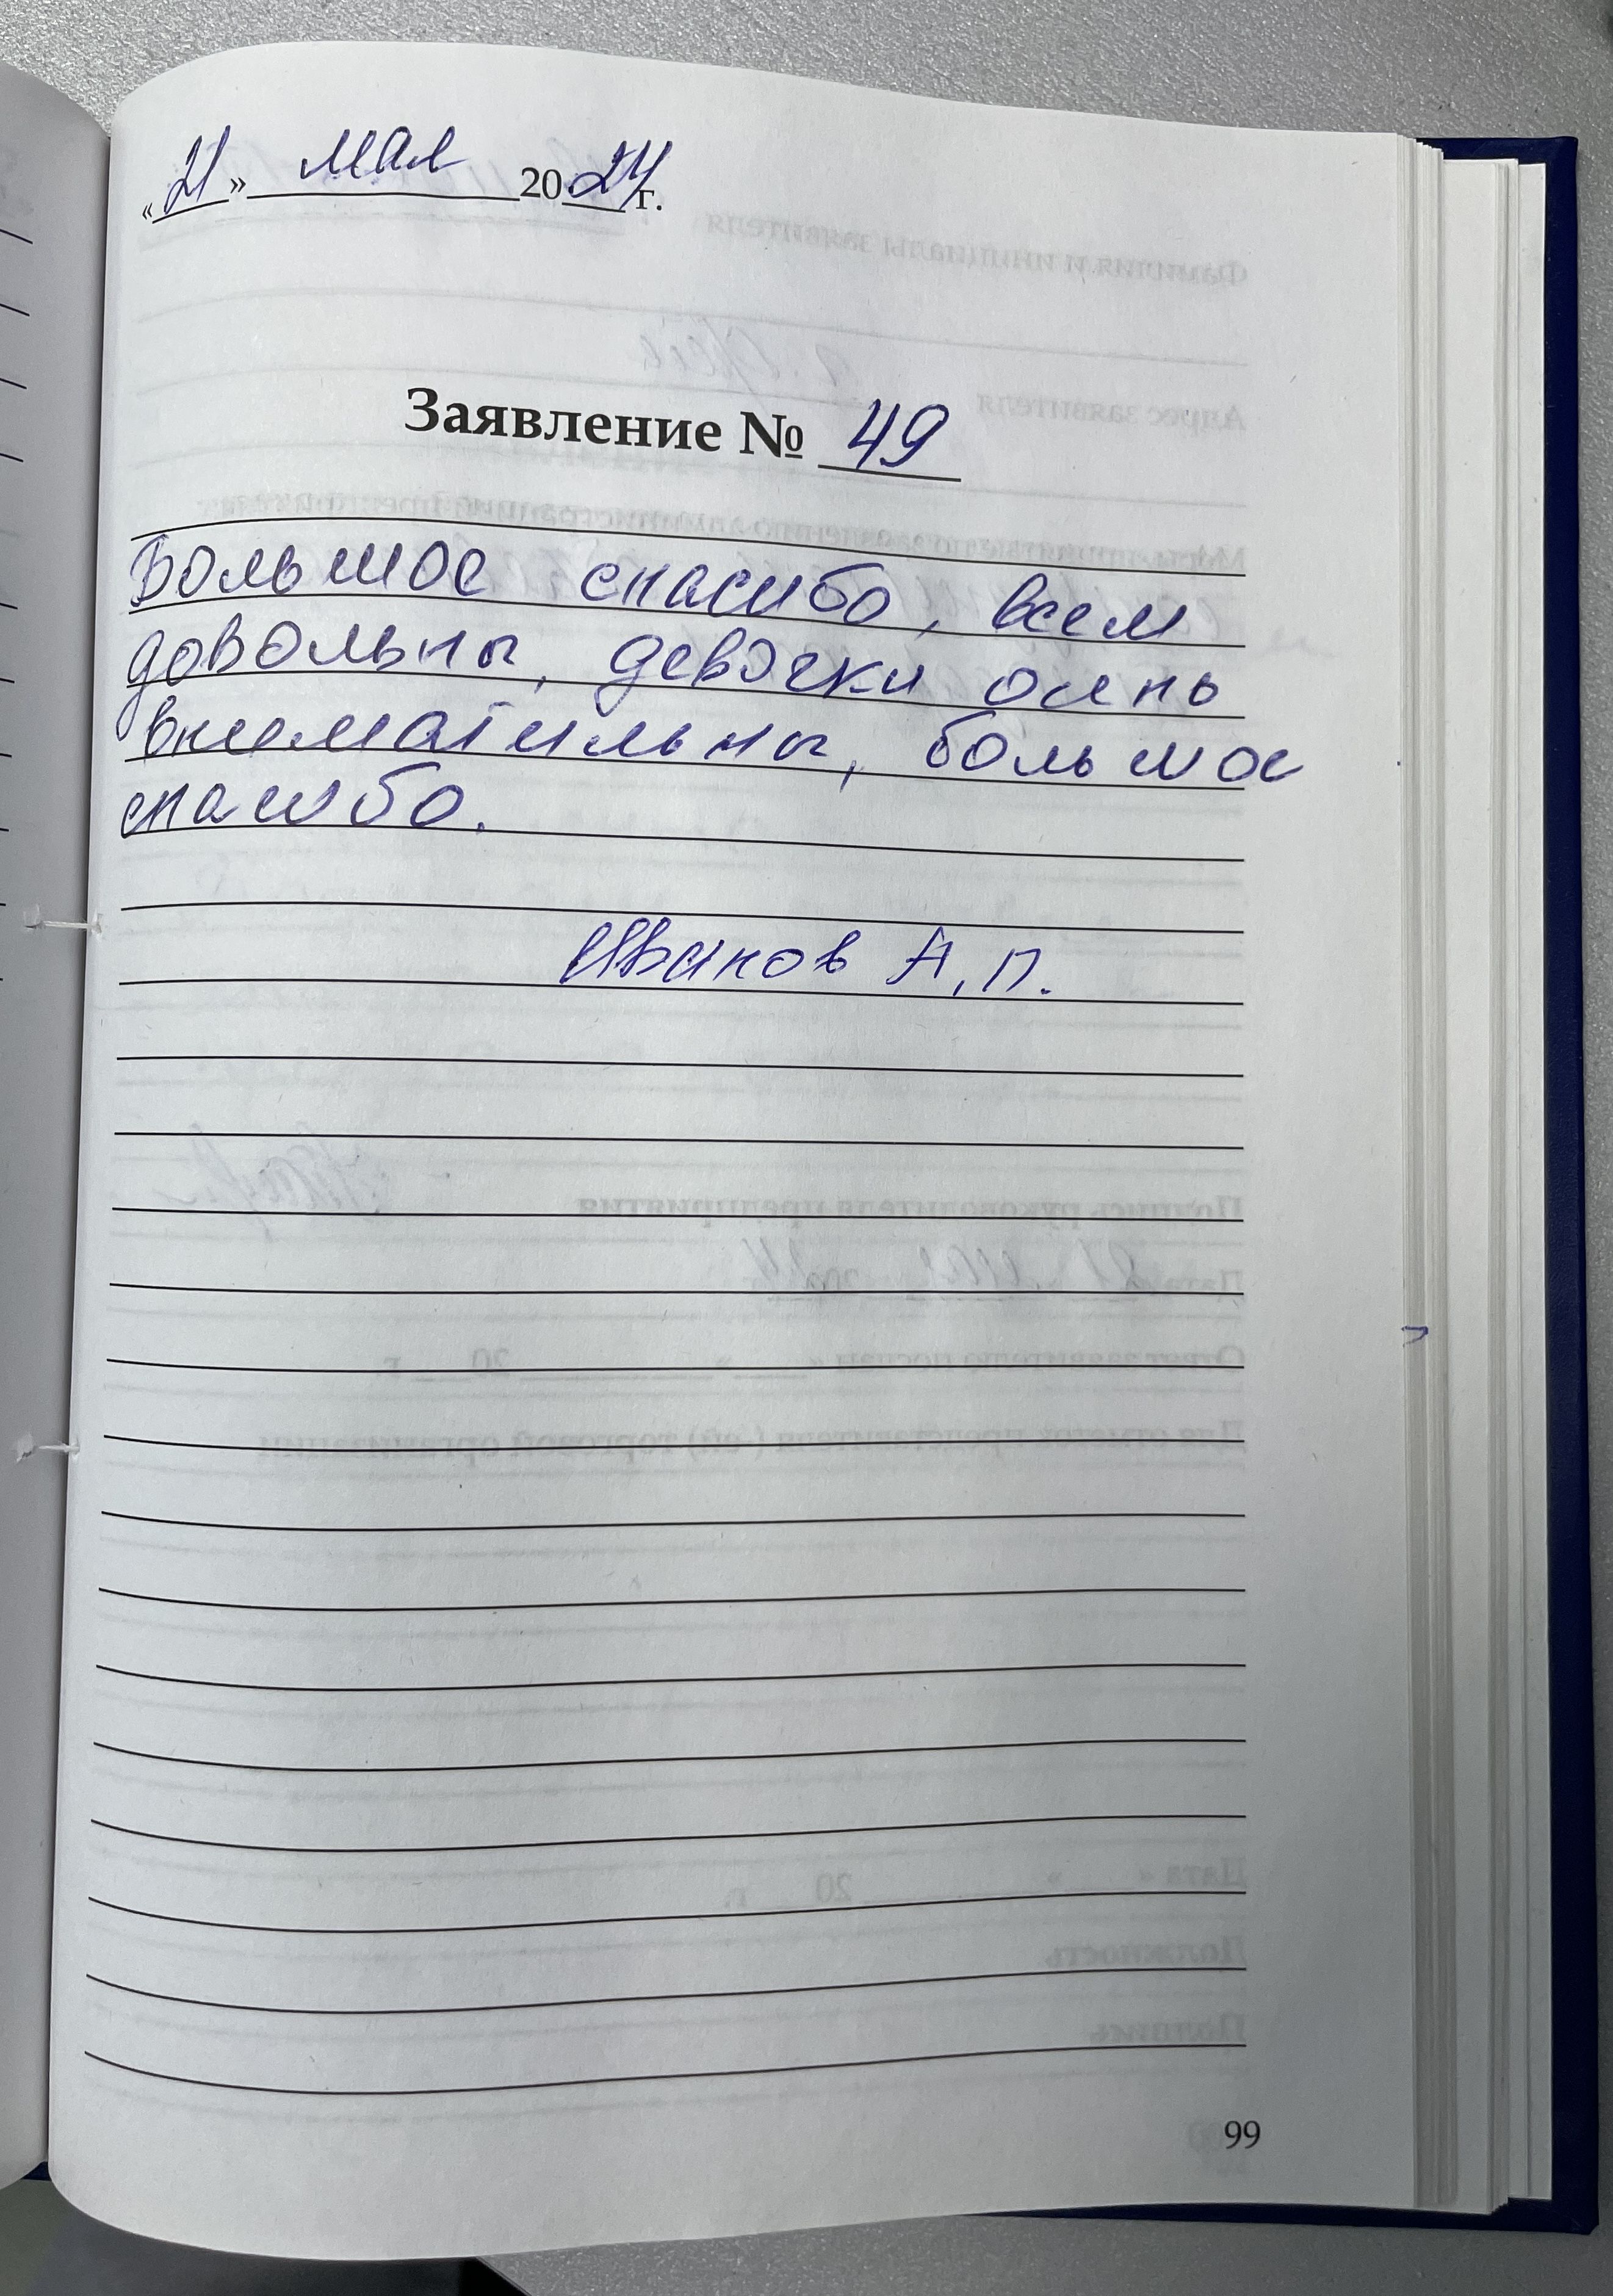 «21» мая 2024 г.
Заявление № 49
Большое спасибо, всем
довольны, девочки очень
внимательны, большое
спасибо.
Иванов А.П.
99